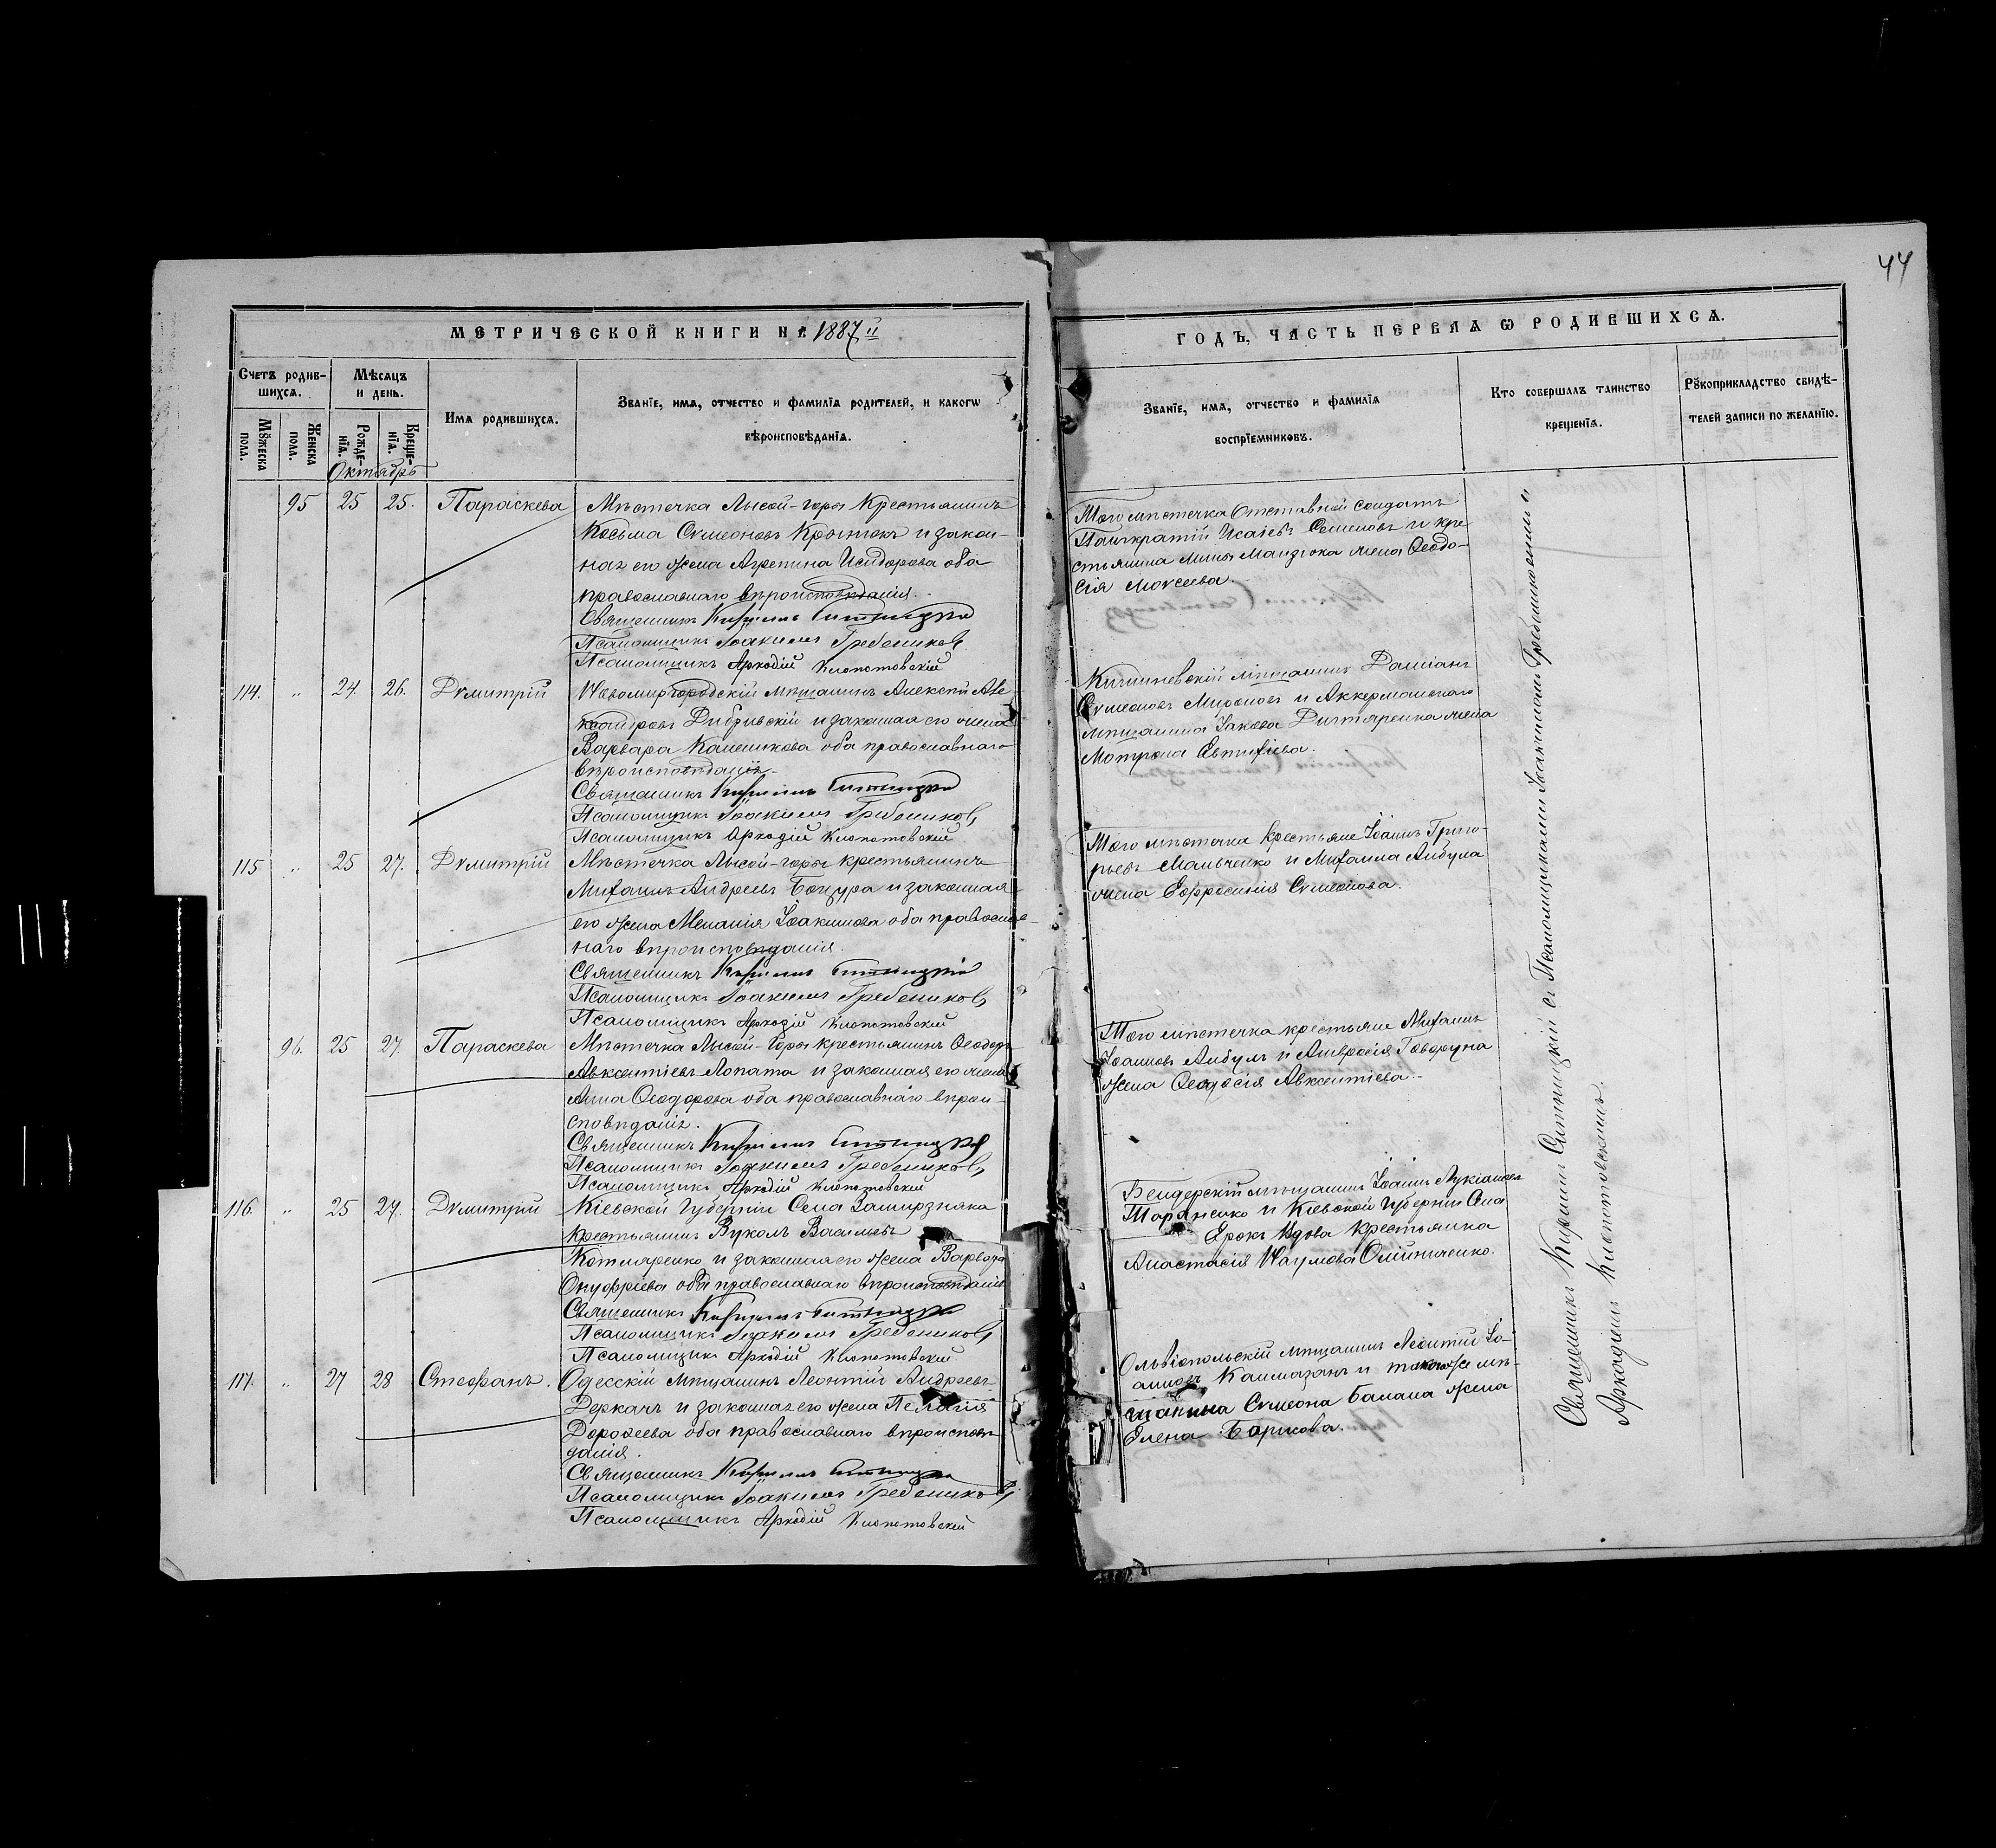 44
МЕТРИЧЕСКОЙ КНИГИ НА 1887й
ГОДЪ, ЧАСТЬ ПЕРВАѦ Ѡ РОДИВШИХСѦ.
Счетъ родив-
шихсѧ.
Мѣсѧцъ
и день.
Мꙋжеска
пола.
Женска
пола.
Рожде-
нїѧ.
Креще-
нїѧ.
Имѧ родившихсѧ.
Званїе, имѧ, отчество и фамилїѧ родителей, и какогѡ
вѣроисповѣданїѧ.
Званїе, имѧ, отчество и фамилїѧ
воспрїемниковъ.
Кто совершалъ таинство
крещенїѧ.
Рꙋкоприкладство свидѣ-
телей записи по желанїю.
Октябрь
95 25 25. Параскева
Мѣстечка Лысой-горы Крестьянинъ
Косьма Сѵмеоновъ и закон-
ная его жена Агрепина Исидорова оба
православнаго вѣроисповѣданія.
Священникъ Кириллъ Ситницкій
Псаломщикъ Іоакимъ Гребениковъ
Псаломщикъ Аркадій Клопотовскій
Того мѣстечка Отставной солдатъ
Панкратій Исаіевъ Семеновъ и кре
стьянина Мины Мандзюка жена Ѳеодо-
сія Моѵсеева.
114. " 24. 26. Дѵмитрій
Новомиргородскій мѣщанинъ Алексѣй Але
ксандровъ Дибривскій и законная его жена
Варвара Калешкова оба православнаго
вѣроисповѣданія.
Священникъ Кириллъ Ситницкій
Псаломщикъ Іоакимъ Гребениковъ
Псаломщикъ Аркадій Клопотовскій
Кишиневскій мѣщанинъ Даміанъ
Сѵмеоновъ Мироновъ и Аккерманскаго
мѣщанина Іакова жена
Мотрона Евтихіева.
115 " 25 27. Дѵмитрій
Мѣстечка Лысой-горы крестьянинъ
Михаилъ Андреевъ Бонзура и законная
его жена Меланія Іоакимова оба православ-
наго вѣроисповѣданія.
Священникъ Кириллъ Ситницкій
Псаломщикъ Іоакимъ Гребениковъ
Псаломщикъ Аркадій Клопотовскій
Того мѣстечка крестьяне Іоаннъ Григо-
рьевъ Мальченко и Михаила Анбула
жена Евфросинія Сѵмеонова.
96. 25 27. Параскева
Мѣстечка Лысой-Горы крестьянинъ Ѳеодоръ
Авксентіевъ Лопата и законная его жена
Анна Ѳеодорова оба православнаго вѣрои-
сповѣданія.
Священникъ Кириллъ Ситницкій
Псаломщикъ Іоакимъ Гребениковъ
Псаломщикъ Аркадій Клопотовскій
Того мѣстечка крестьяне Михаилъ
Іоанновъ Анбулъ и Амвросія Говоруна
жена Ѳеодосія Авксентіева.
116. " 25 27. Дѵмитрій
Кіевской Губерніи Села
крестьянинъ Вуколъ Васильевъ
Котляренко и законная его жена Варвара
Онуфріева оба православнаго вѣроисповѣданія
Священникъ Кириллъ Ситницкій
Псаломщикъ Іоакимъ Гребениковъ
Псаломщикъ Аркадій Клопотовскій
Бендерскій мѣщанинъ Іоаннъ Лукіановъ
Тараненко и Кіевской Губерніи Села
Ерокъ вдова крестьянка
Анастасія Наумова Олійниченко.
117. " 27 28 Стефанъ.
Одесскій мѣщанинъ Леонтій Андреевъ
Деркачъ и законная его жена Пелагія
Дороѳеева оба православнаго вѣроисповѣ-
данія.
Священникъ Кириллъ Ситницкій
Псаломщикъ Іоакимъ Гребениковъ
Псаломщикъ Аркадій Клопотовскій
Ольвіопольскій мѣщанинъ Леонтій Іо-
анновъ и такого же мѣ-
щанина Сѵмеона Балана жена
Елена Борисова.
Священникъ Кириллъ Ситницкій съ Псаломщиками Іоакимомъ Гребениковымъ и
Аркадіемъ Клопотовскимъ.